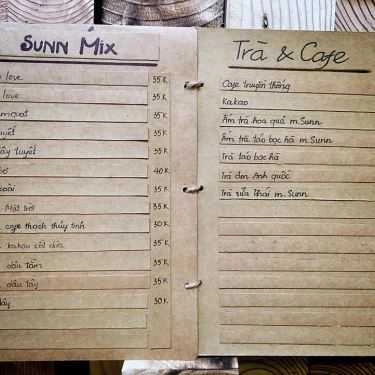 SUNN MIX
love 35K
love 35K
35K
tuyết 35K
tuyết 35K
40K
35K
mặt trời 35K
cafe thạch thủy tinh 30K
kakao cốt dừa 35K
dâu tằm 35K
dâu tây 35K
30K
Trà & Cafe
Cafe truyền thống
Kakao
Ấm trà hoa quả m.Sunn
Ấm trà táo bạc hà m.Sunn
Trà táo bạc hà
Trà đen Anh quốc
Trà sữa Thái m.Sunn